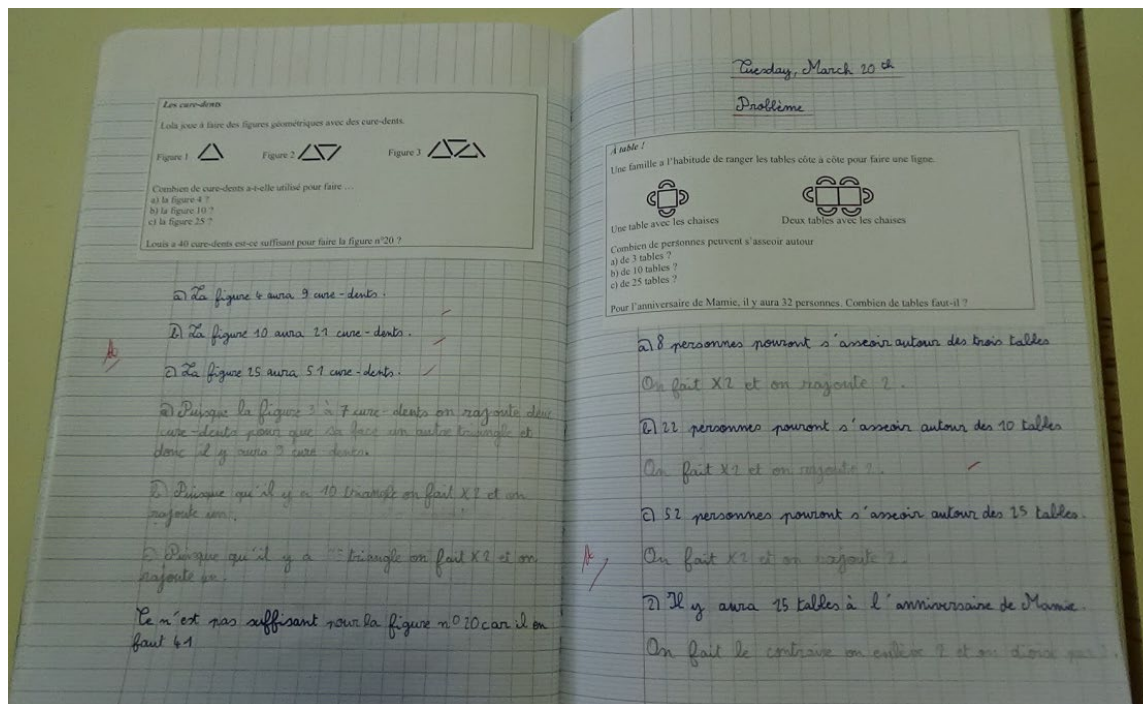 Les cure-dents
Lola joue à faire des figures géométriques avec des cure-dents.
Figure 1 Figure 2 Figure 3
Combien de cure-dents a-t-elle utilisé pour faire …
a) la figure 4 ?
b) la figure 10 ?
c) la figure 25 ?
Louis a 40 cure-dents est-ce suffisant pour faire la figure n°20 ?
a) La figure 4 aura 9 cure-dents.
b) La figure 10 aura 21 cure-dents.
c) La figure 25 aura 51 cure-dents.
a) Puisque la figure 3 à 7 cure-dents on rajoute deux
cure-dents pour que sa face un autre triangle et
donc il y aura 9 cure dents.
b) Puisque qu'il y a 10 triangle on fait X2 et on
rajoute un.
c) Puisque qu'il y a triangle on fait X2 et on
rajoute
Ce n'est pas suffisant pour la figure n°20 car il en
faut 41
Tuesday, March 20th
Problème
A table !
Une famille a l'habitude de ranger les tables côte à côte pour faire une ligne.
Une table avec les chaises Deux tables avec les chaises
Combien de personnes peuvent s'asseoir autour
a) de 3 tables ?
b) de 10 tables ?
c) de 25 tables ?
Pour l'anniversaire de Mamie, il y aura 32 personnes. Combien de tables faut-il ?
a) 8 personnes pouront s'asseoir autour des trois tables
On fait X2 et on rajoute 2.
b) 22 personnes pouront s'asseoir autour des 10 tables
On fait X2 et on rajoute 2.
c) 52 personnes pouront s'asseoir autour des 25 tables.
On fait X2 et on rajoute 2.
2) Il y aura 15 tables à l'anniversaire de Mamie.
On fait le contraire on enlève 2 et on